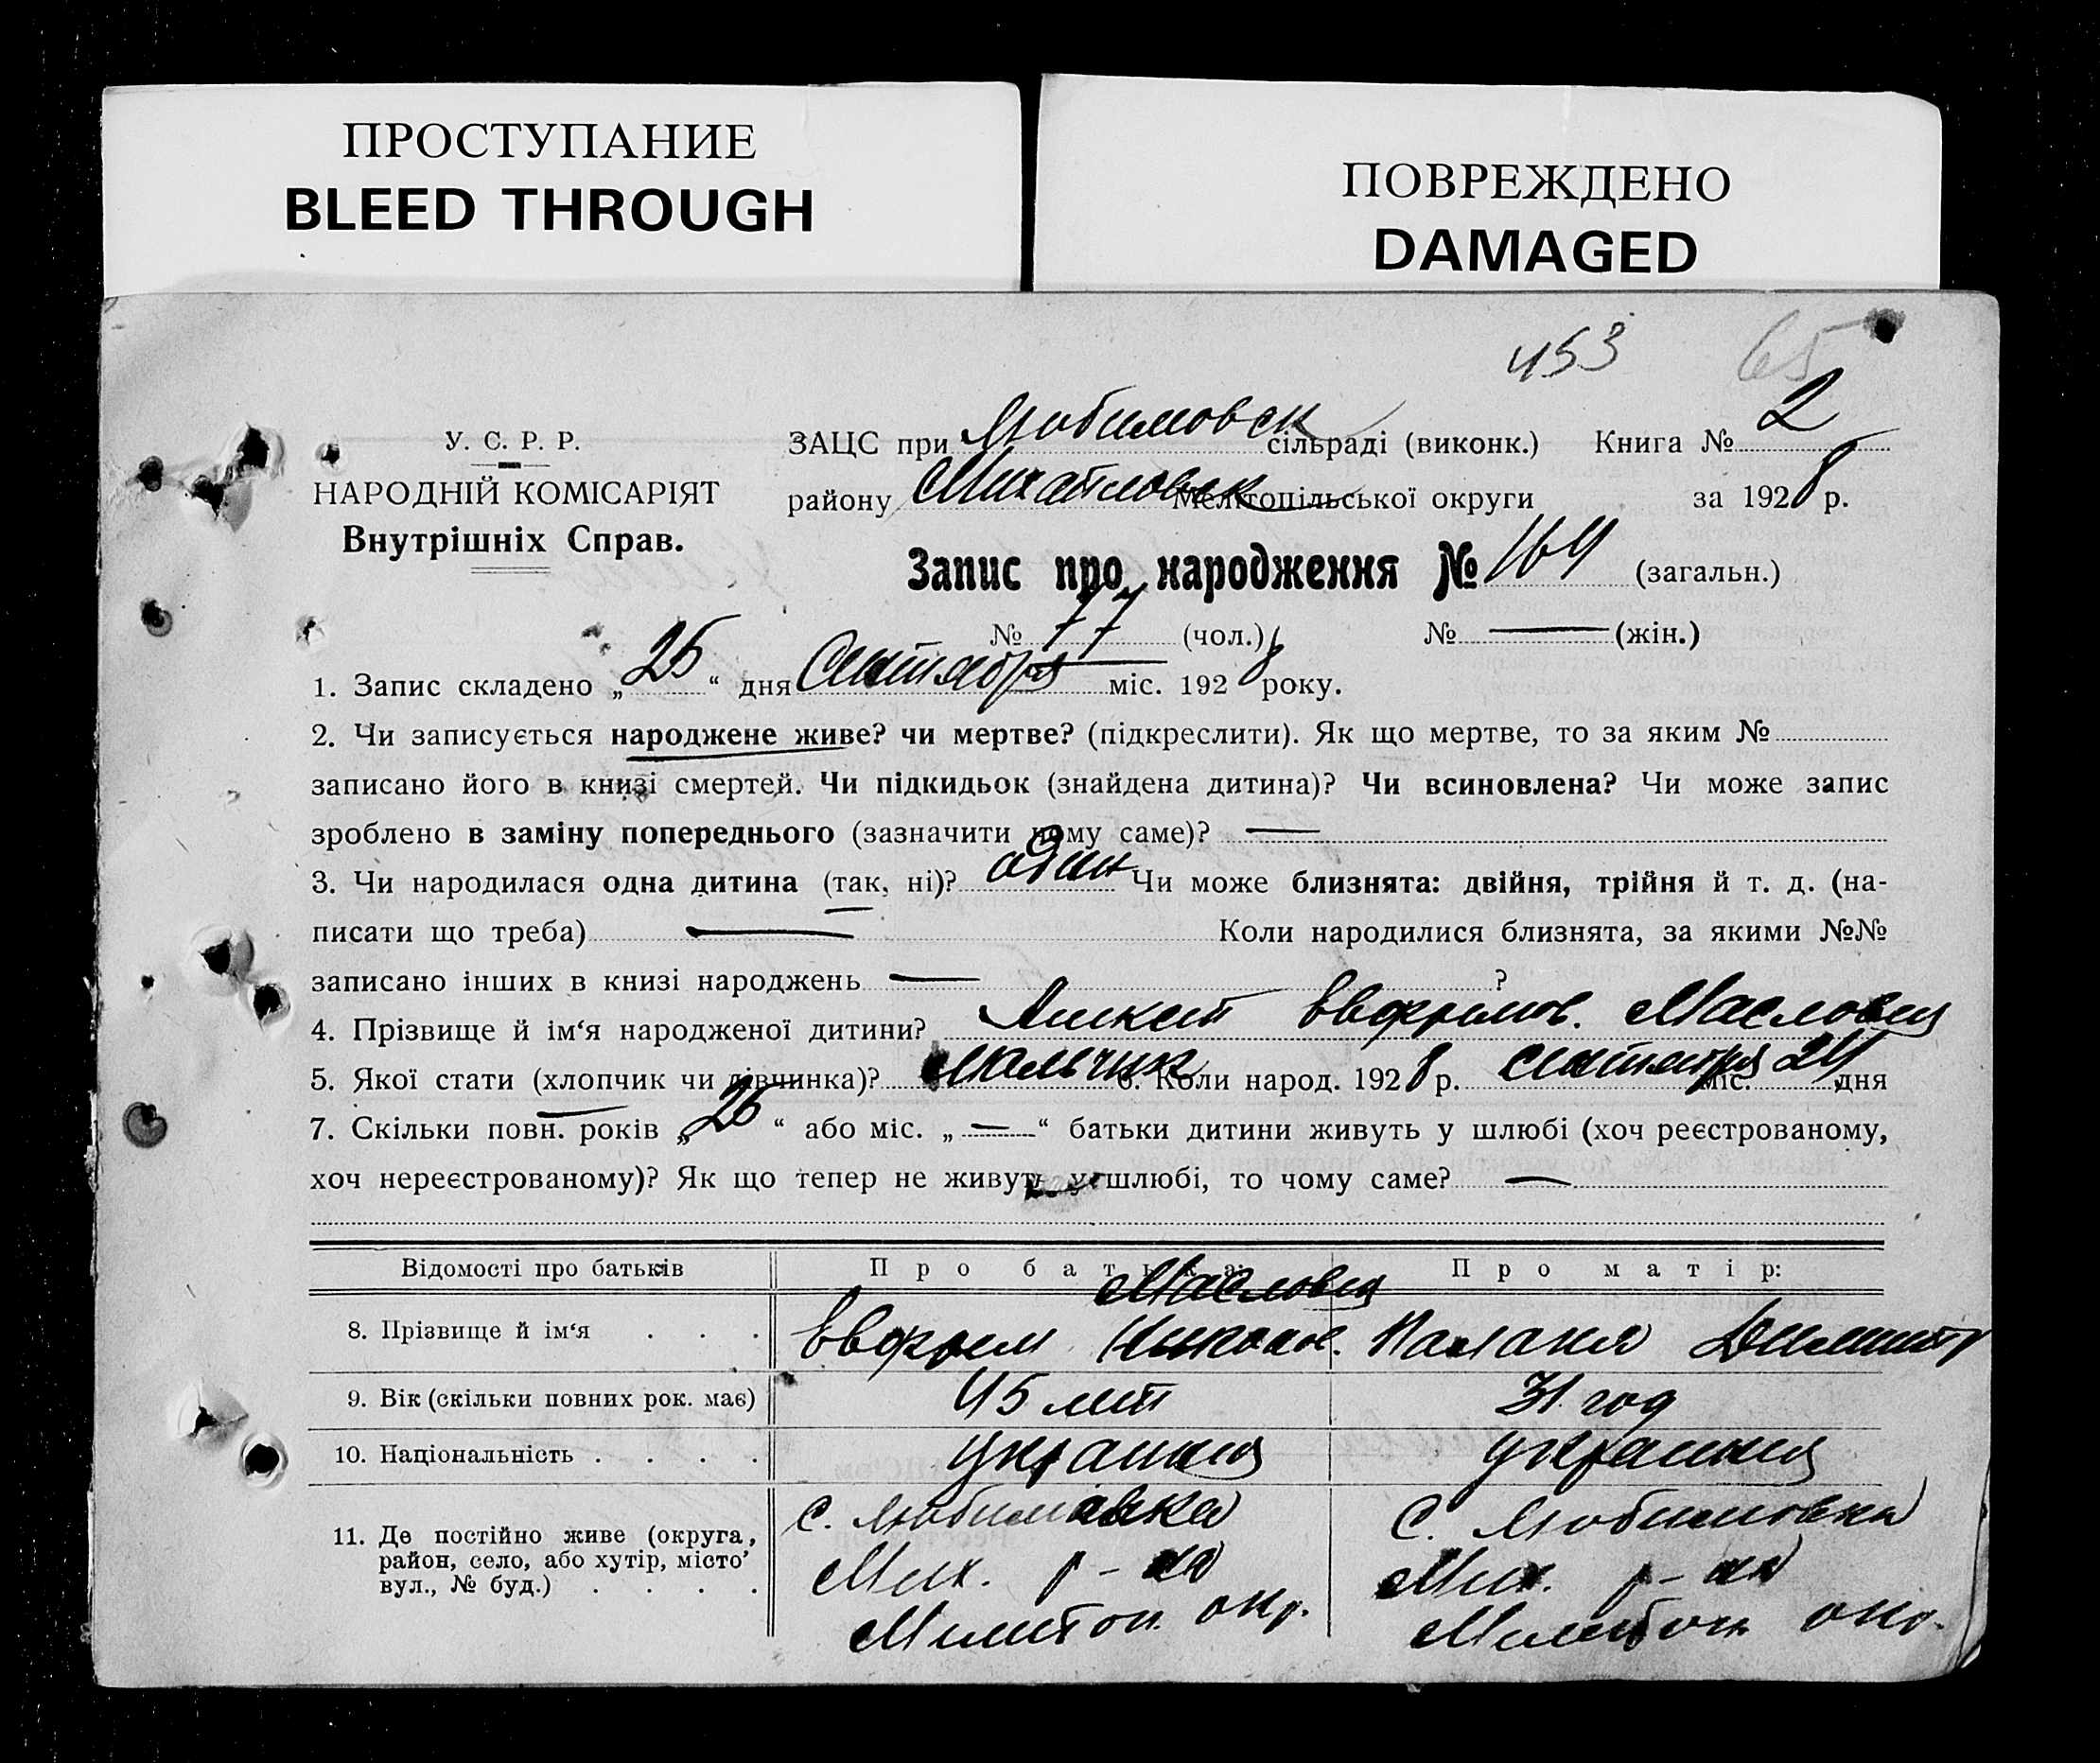 ПРОСТУПАНИЕ
BLEED THROUGH
ПОВРЕЖДЕНО
DAMAGED
453 65
У. С. Р. Р.
НАРОДНІЙ КОМІСАРІЯТ
Внутрішніх Справ.
ЗАЦС при Любимовск сільраді (виконк.) Книга № 2
району Михайловск Мелітопільської округи за 1928 р.
Запис про народження № 164 (загальн.)
№ 77 (чол.) № — (жін.)
1. Запис складено „ 25 “ дня Сентября міс. 1928 року.
2. Чи записується народжене живе? чи мертве? (підкреслити). Як що мертве, то за яким №
записано його в книзі смертей. Чи підкидьок (знайдена дитина)? Чи всиновлена? Чи може запис
зроблено в заміну попереднього (зазначити чому саме)? —
3. Чи народилася одна дитина (так, ні)? один Чи може близнята: двійня, трійня й т. д. (на-
писати що треба) — Коли народилися близнята, за якими №№
записано інших в книзі народжень — ?
4. Прізвище й ім‘я народженої дитини? Масловец
5. Якої стати (хлопчик чи дівчинка)? Мальчик 6. Коли народ. 1928 р. сентября міс. 24 дня
7. Скільки повн. років „ 26 “ або міс. „ — “ батьки дитини живуть у шлюбі (хоч реєстрованому,
хоч нереєстрованому)? Як що тепер не живуть у шлюбі, то чому саме? —
Відомості про батьків Про батька: Про матір:
Масловец
8. Прізвище й ім‘я . . . Евфрем Никола. Палания Димит
9. Вік (скільки повних рок. має) 45 лет 31 год
10. Національність . . . . украинец украинец
11. Де постійно живе (округа,
район, село, або хутір, місто
вул., № буд.) . . . .
с. Любимовка
Мих. р-на
Мелитоп. окр.
с. Любимовка
Мих. р-на
Мелитоп окр.